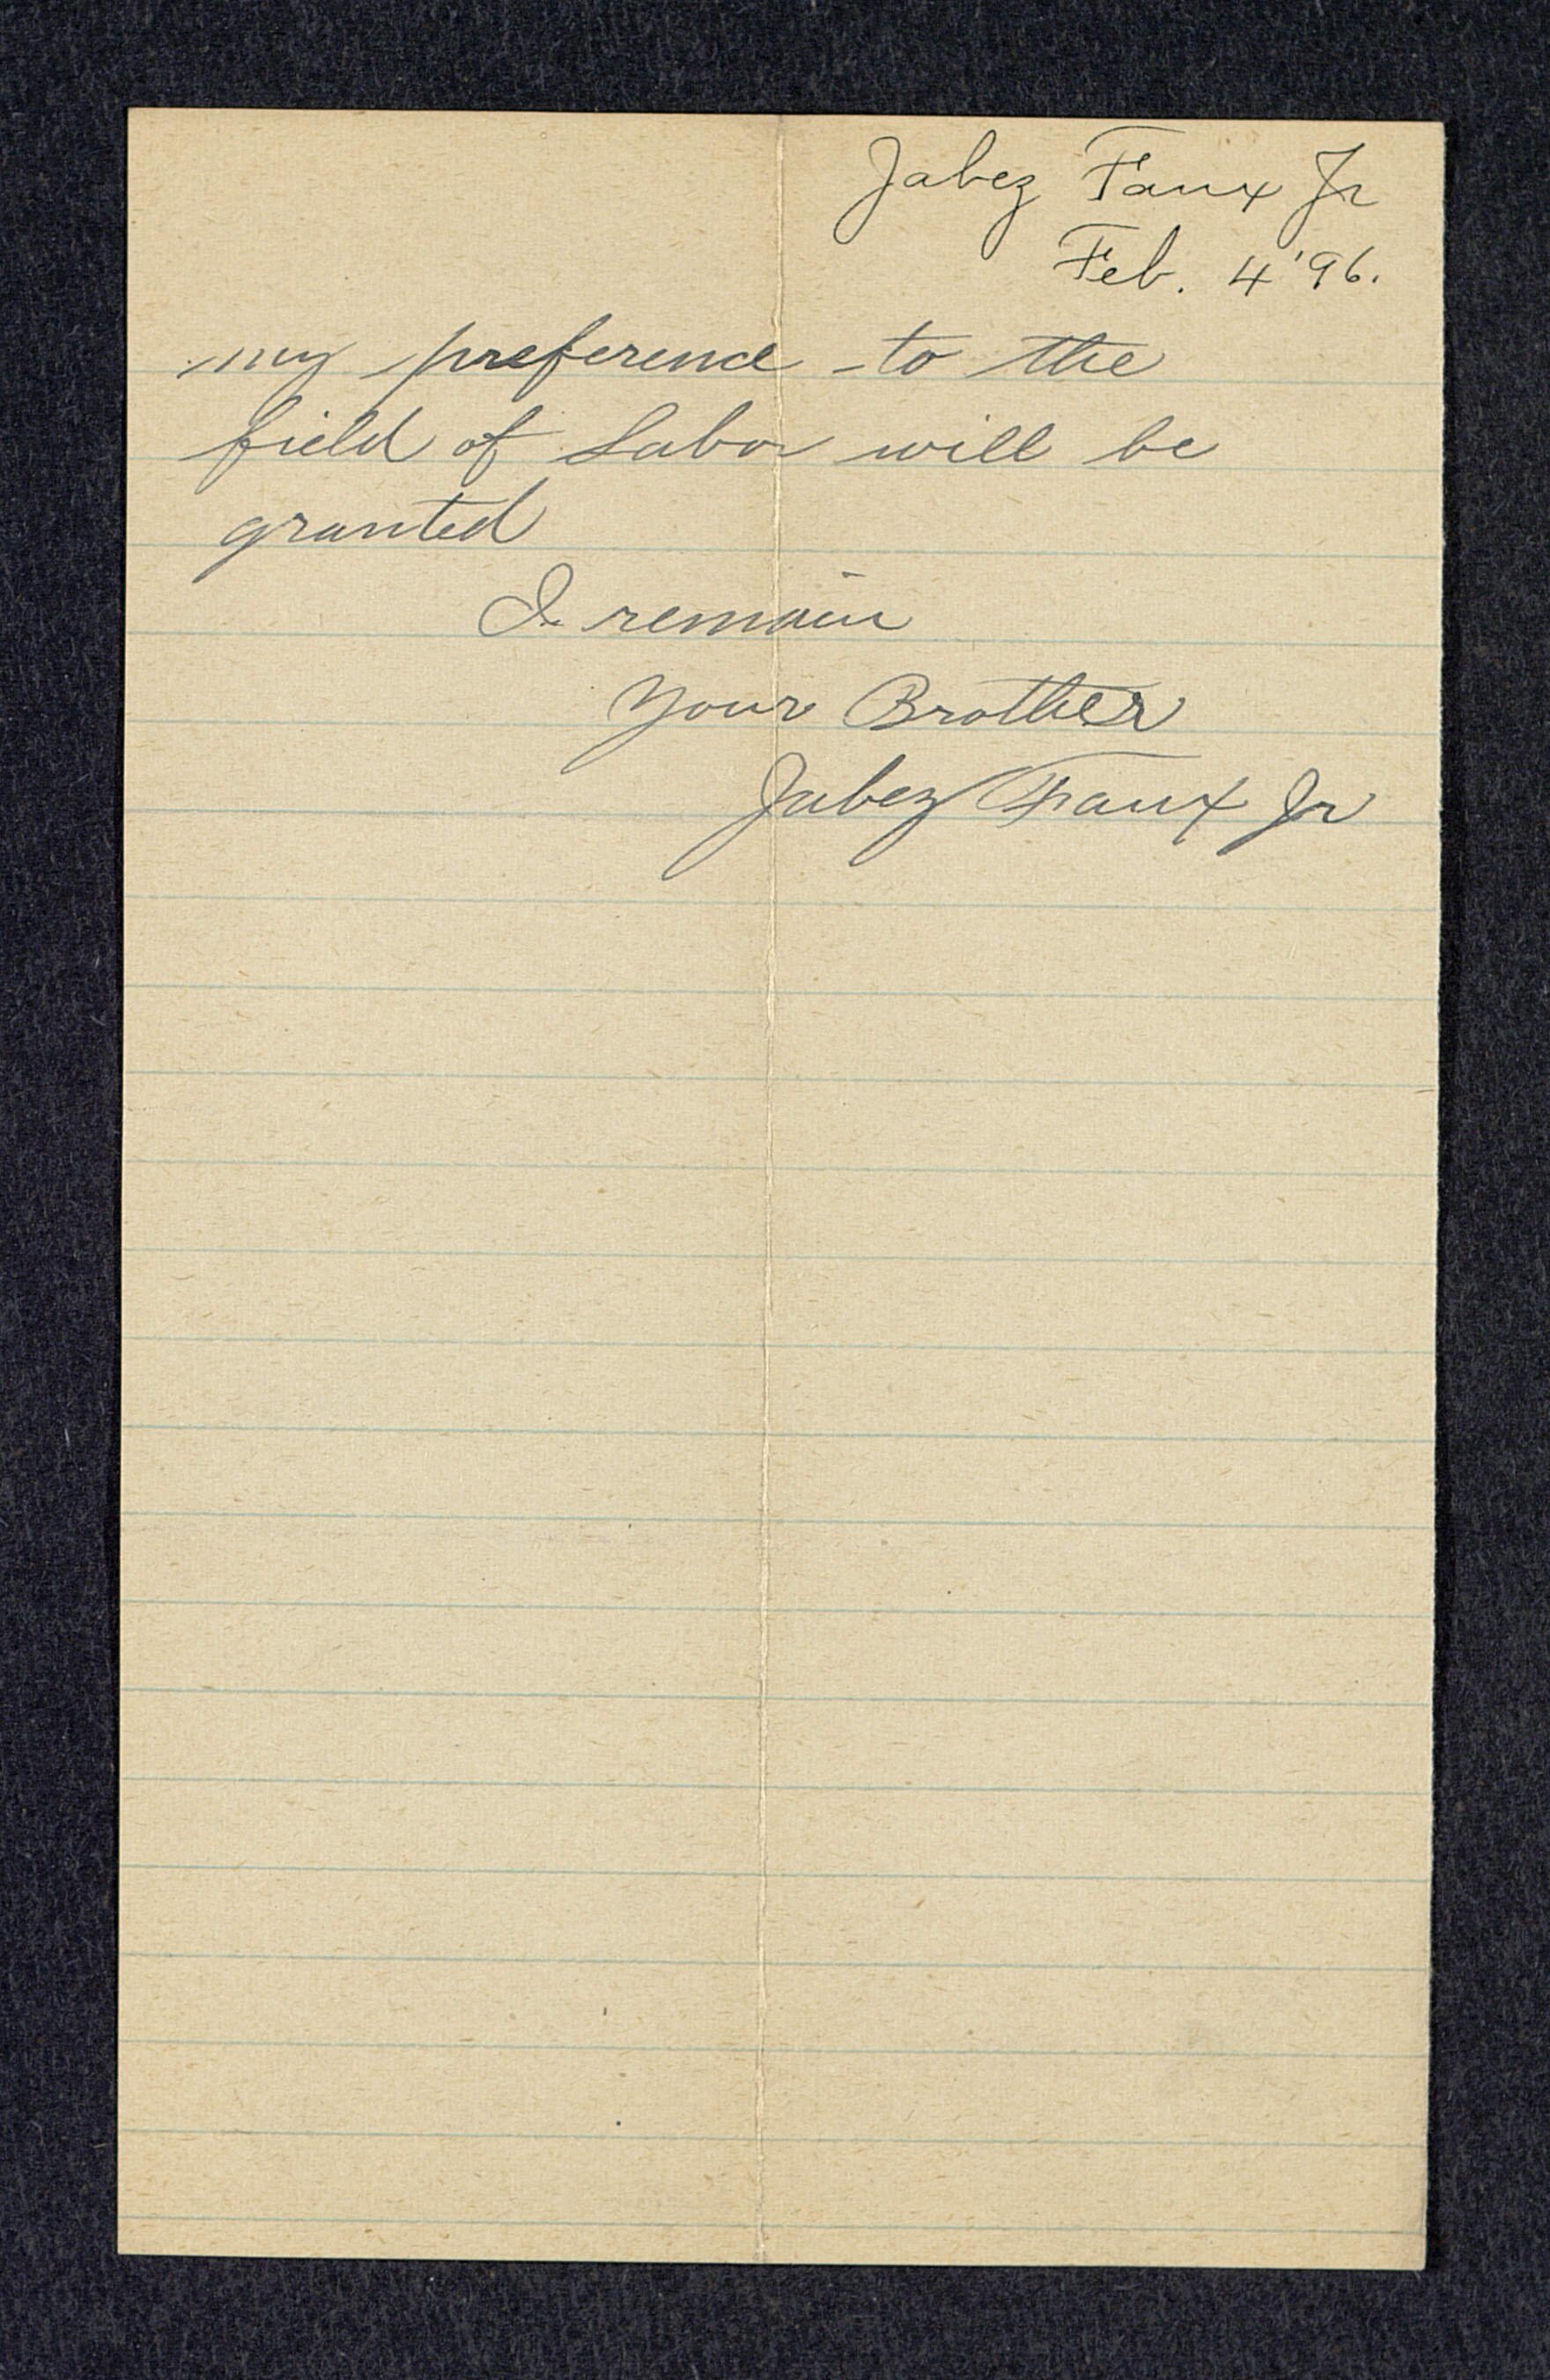 Jabez Faux Jr
Feb. 4 '96.
my preference to the
field of Labor will be
granted
I remain
Your Brother
Jabez Faux Jr